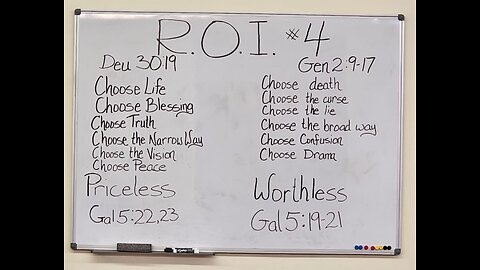 R.O.I. #4
Deu 30:19
Choose Life
Choose Blessing
Choose Truth
Choose the Narrow Way
Choose the Vision
Choose Peace
Priceless
Gal 5:22,23
Gen 2:9-17
Choose death
Choose the curse
Choose the lie
Choose the broad way
Choose Confusion
Choose Drama
Worthless
Gal 5:19-21